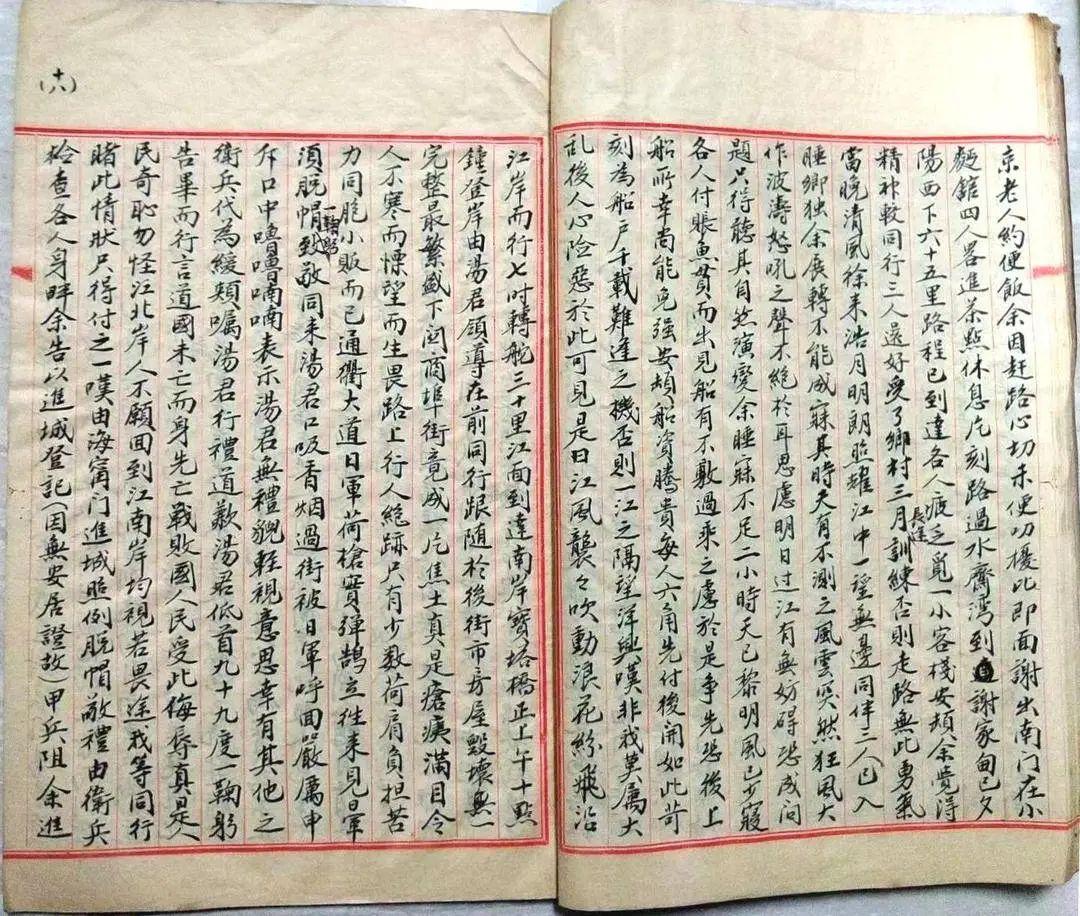 京老人約便飯余因赶路心切未便叨擾比即面謝出南门在小
麵舘四人畧進茶點休息片刻路過水齋湾到謝家甸已夕
陽西下六十五里路程已到達各人疲乏覓一小客棧安頓余覺得
精神較同行三人還好受了鄉村三月長途訓練否則走路無此勇氣
當晚清風徐来浩月明朗照耀江中一望無邊同伴三人已入
睡鄉独余展轉不能成寐其時天有不測之風雲突然狂風大
作波濤怒吼之聲不絶於耳思慮明日过江有無妨碍恐成问
題只得聽其自然演變余睡寐不足二小時天已黎明風已少寢
各人付賬魚貫而出見船有不敷過乘之虞於是争先恐後上
船所幸尚能免强安頓船資騰貴每人六角先付後開如此苛
刻為船户千載難逢之機否則一江之隔望洋興嘆非我莫属大
乱後人心险惡於此可見是日江風襲々吹動浪花紛飛沿
(十六)
江岸而行七时轉舵三十里江面到達南岸寶塔橋正上午十點
鐘登岸由湯君領導在前同行跟随於後街市房屋毀壞無一
完整最繁盛下関商埠街竟成一片焦土真是瘡痍滿目令
人不寒而慄望而生畏路上行人絶跡只有少数荷肩負担苦
力同胞小贩而已通衢大道日軍荷槍實弹鹄立往来見日軍
須脱帽一鞠躬致敬同来湯君口吸香烟過街被日軍呼面嚴厲申
斥口中嚕嚕喃喃表示湯君無禮貌輕視意思幸有其他之
衛兵代為緩頬嘱湯君行禮道歉湯君低首九十九度一鞠躬
告畢而行言道國未亡而身先亡戰敗國人民受此侮辱真是人
民奇恥勿怪江北岸人不願回到江南岸均視若畏途我等同行
睹此情狀只得付之一嘆由海甯门進城照例脱帽敬禮由衛兵
检查各人身畔余告以進城登記(因無安居證故)甲兵阻余進